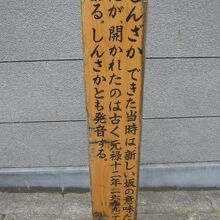 んざか できた当時は新しい坂の意味だ
が、開かれたのは古く元禄十二年
る。しんさかとも発音する。